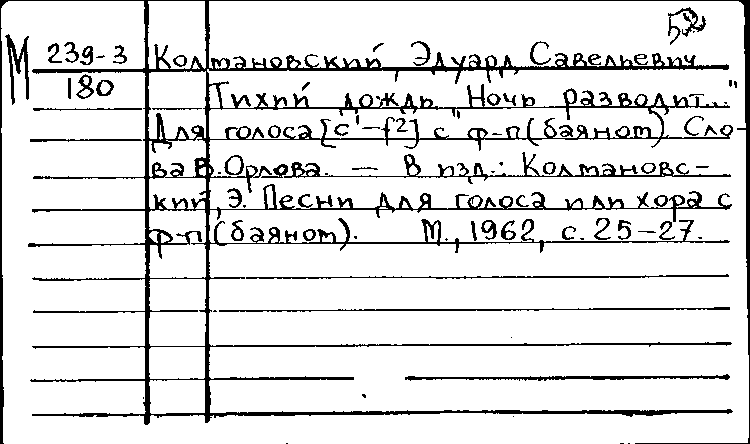 52
М 239-3 Колмановский, Эдуард Савельевич
180 Тихий дождь. "Ночь разводит..."
Для голоса [c¹–f²] с ф-п (баяном). Сло-
ва В. Орлова. — В изд.: Колмановс-
кий, Э. Песни для голоса или хора с
ф-п (баяном). М., 1962, с. 25–27.